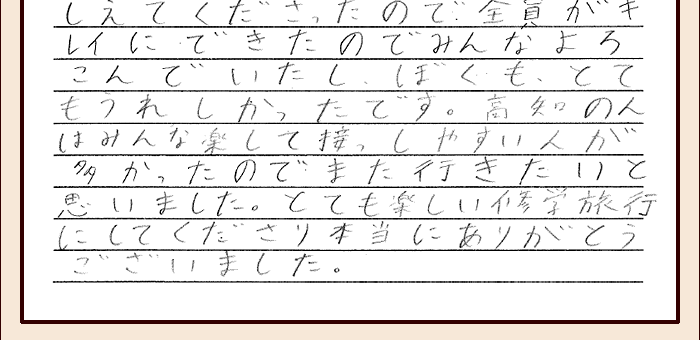 しえてくださったので全員がキ
レイにできたのでみんなよろ
こんでいたし、ぼくも、とて
もうれしかったです。高知の人
はみんな楽して接っしやすい人が
多かったのでまた行きたいと
思いました。とても楽しい修学旅行
にしてくださり本当にありがとう
ございました。